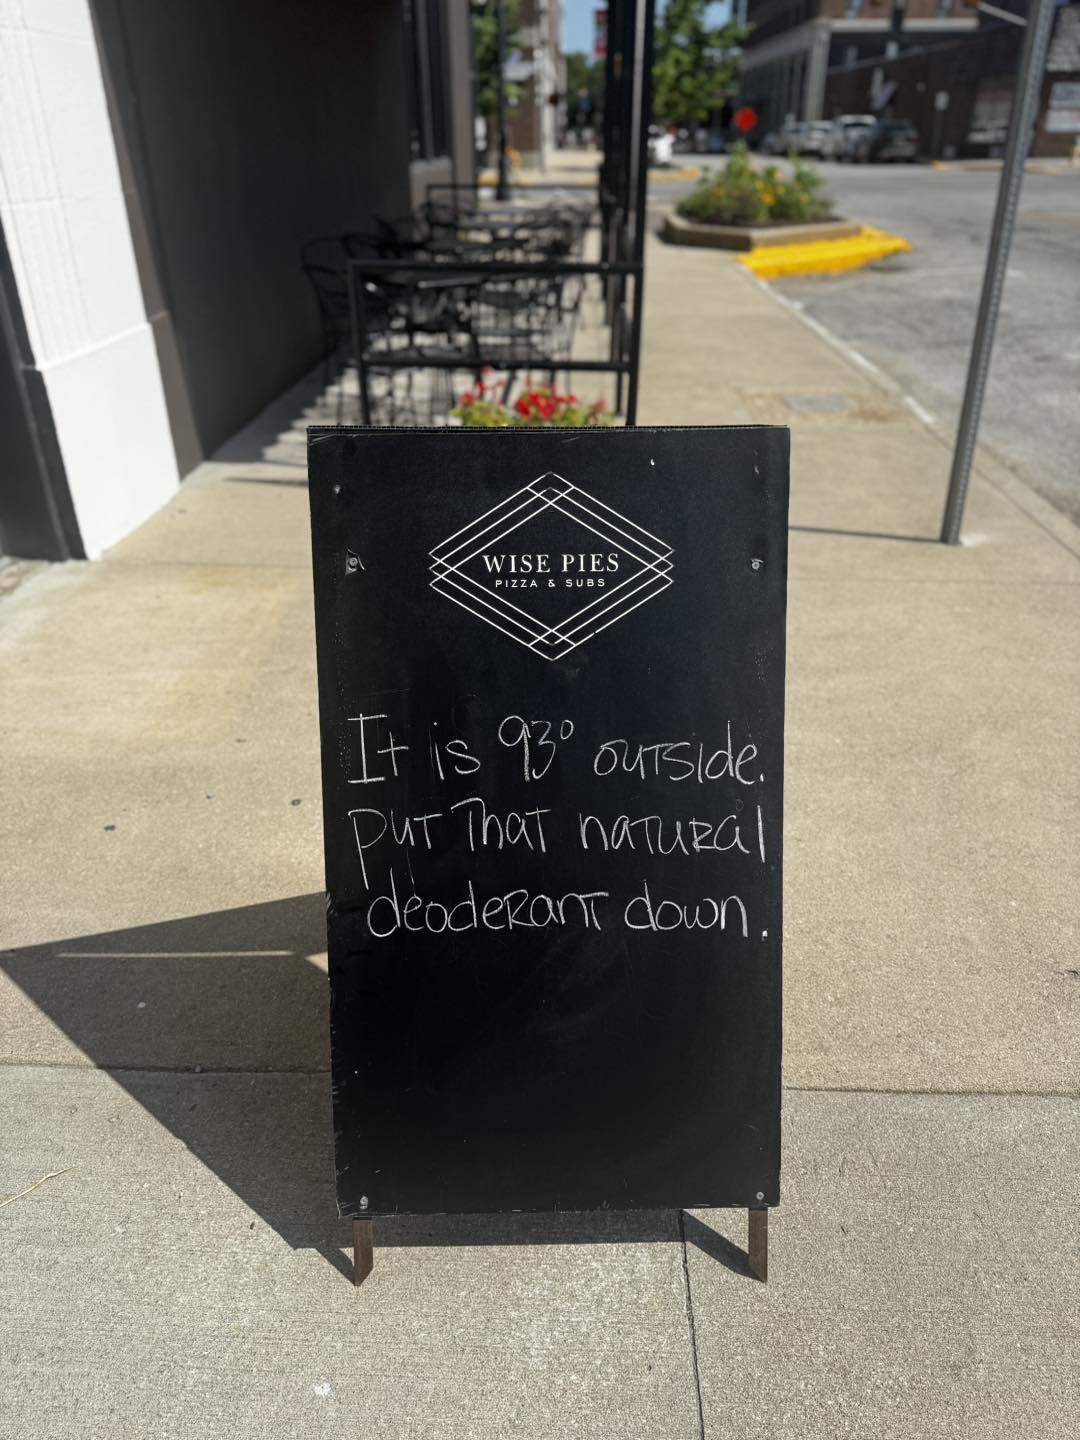 WISE PIES
PIZZA & SUBS
It is 93° outside.
put That natural
deoderant down.